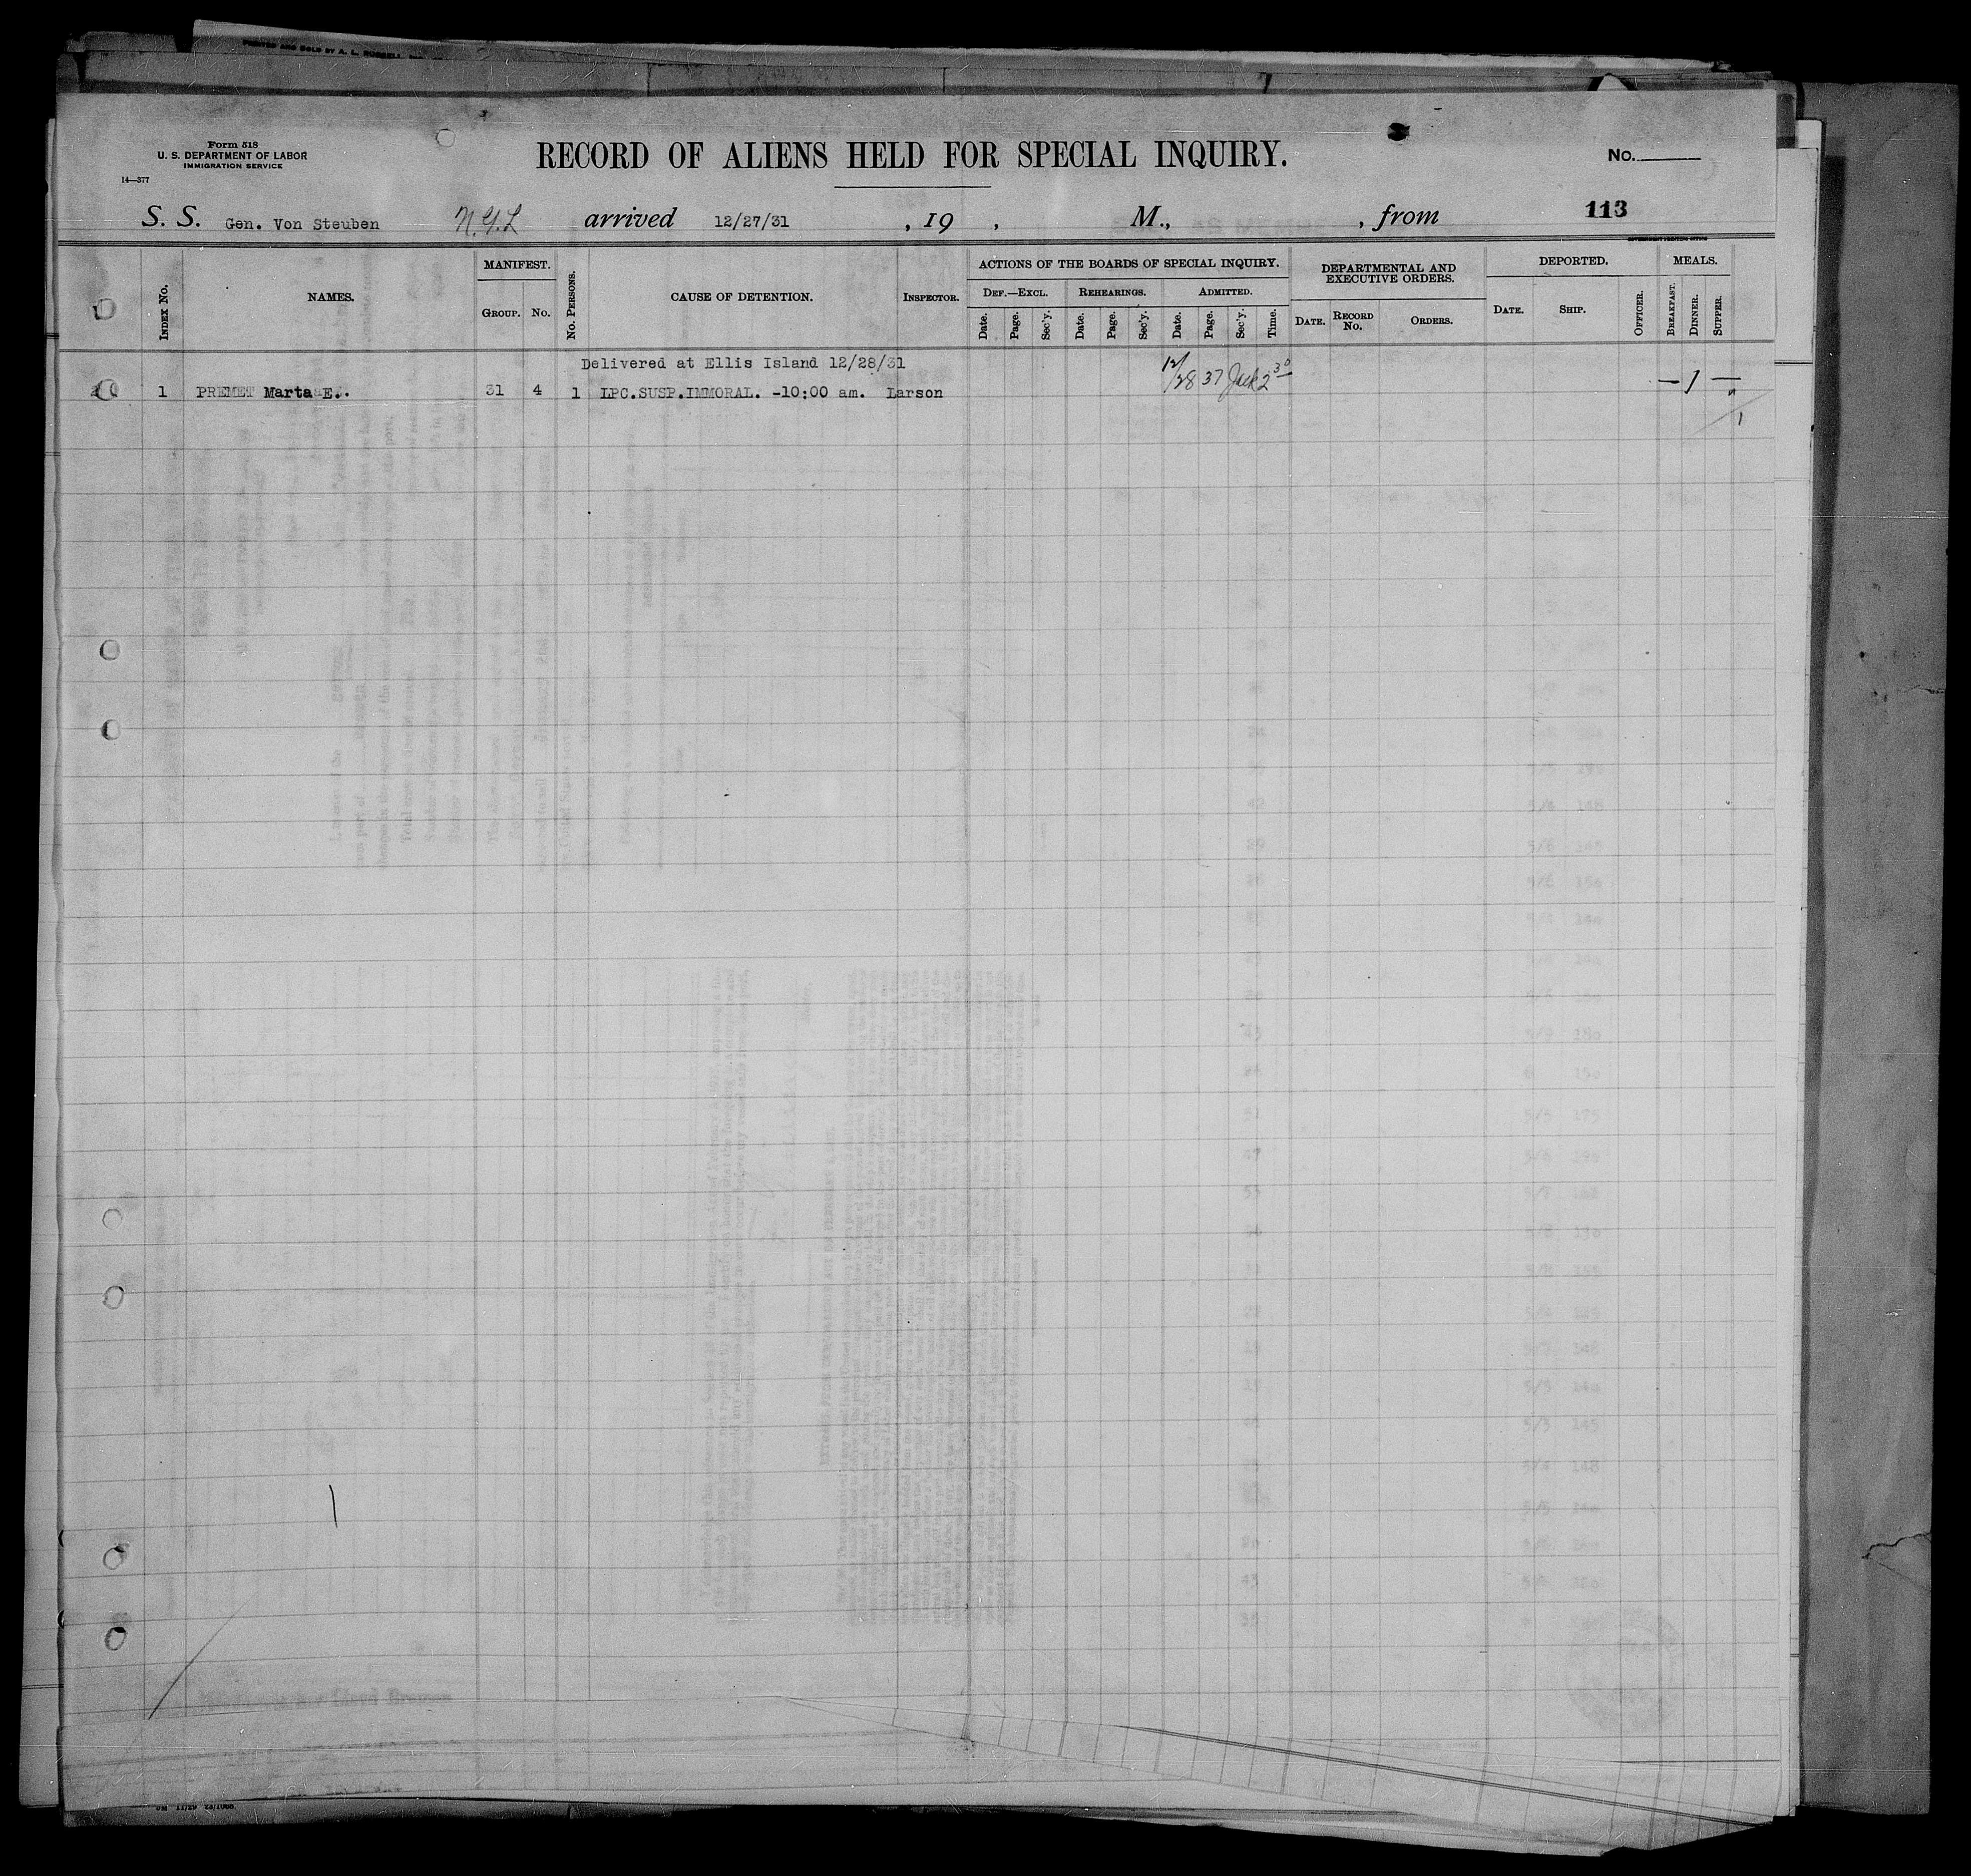 PRINTED AND SOLD BY A. L. RUSSELL, INC.
Form 518
U. S. DEPARTMENT OF LABOR
IMMIGRATION SERVICE
14—377
RECORD OF ALIENS HELD FOR SPECIAL INQUIRY.
No.
S. S. Gen. Von Steuben N.G.L arrived 12/27/31 , 19 , M., , from 113
GOVERNMENT PRINTING OFFICE
INDEX NO.
NAMES.
MANIFEST.
GROUP. NO.
NO. PERSONS.
CAUSE OF DETENTION.
INSPECTOR.
ACTIONS OF THE BOARDS OF SPECIAL INQUIRY.
DEF.—EXCL. REHEARINGS. ADMITTED.
Date. Page. Sec'y. Date. Page. Sec'y. Date. Page. Sec'y. Time.
DEPARTMENTAL AND EXECUTIVE ORDERS.
DATE. RECORD No. ORDERS.
DEPORTED.
DATE. SHIP. OFFICER.
MEALS.
BREAKFAST. DINNER. SUPPER.
Delivered at Ellis Island 12/28/31
1 PREMET Marta E. 31 4 1 LPC.SUSP.IMMORAL. -10:00 am. Larson 12/28 37 2 30 — 1 —
1